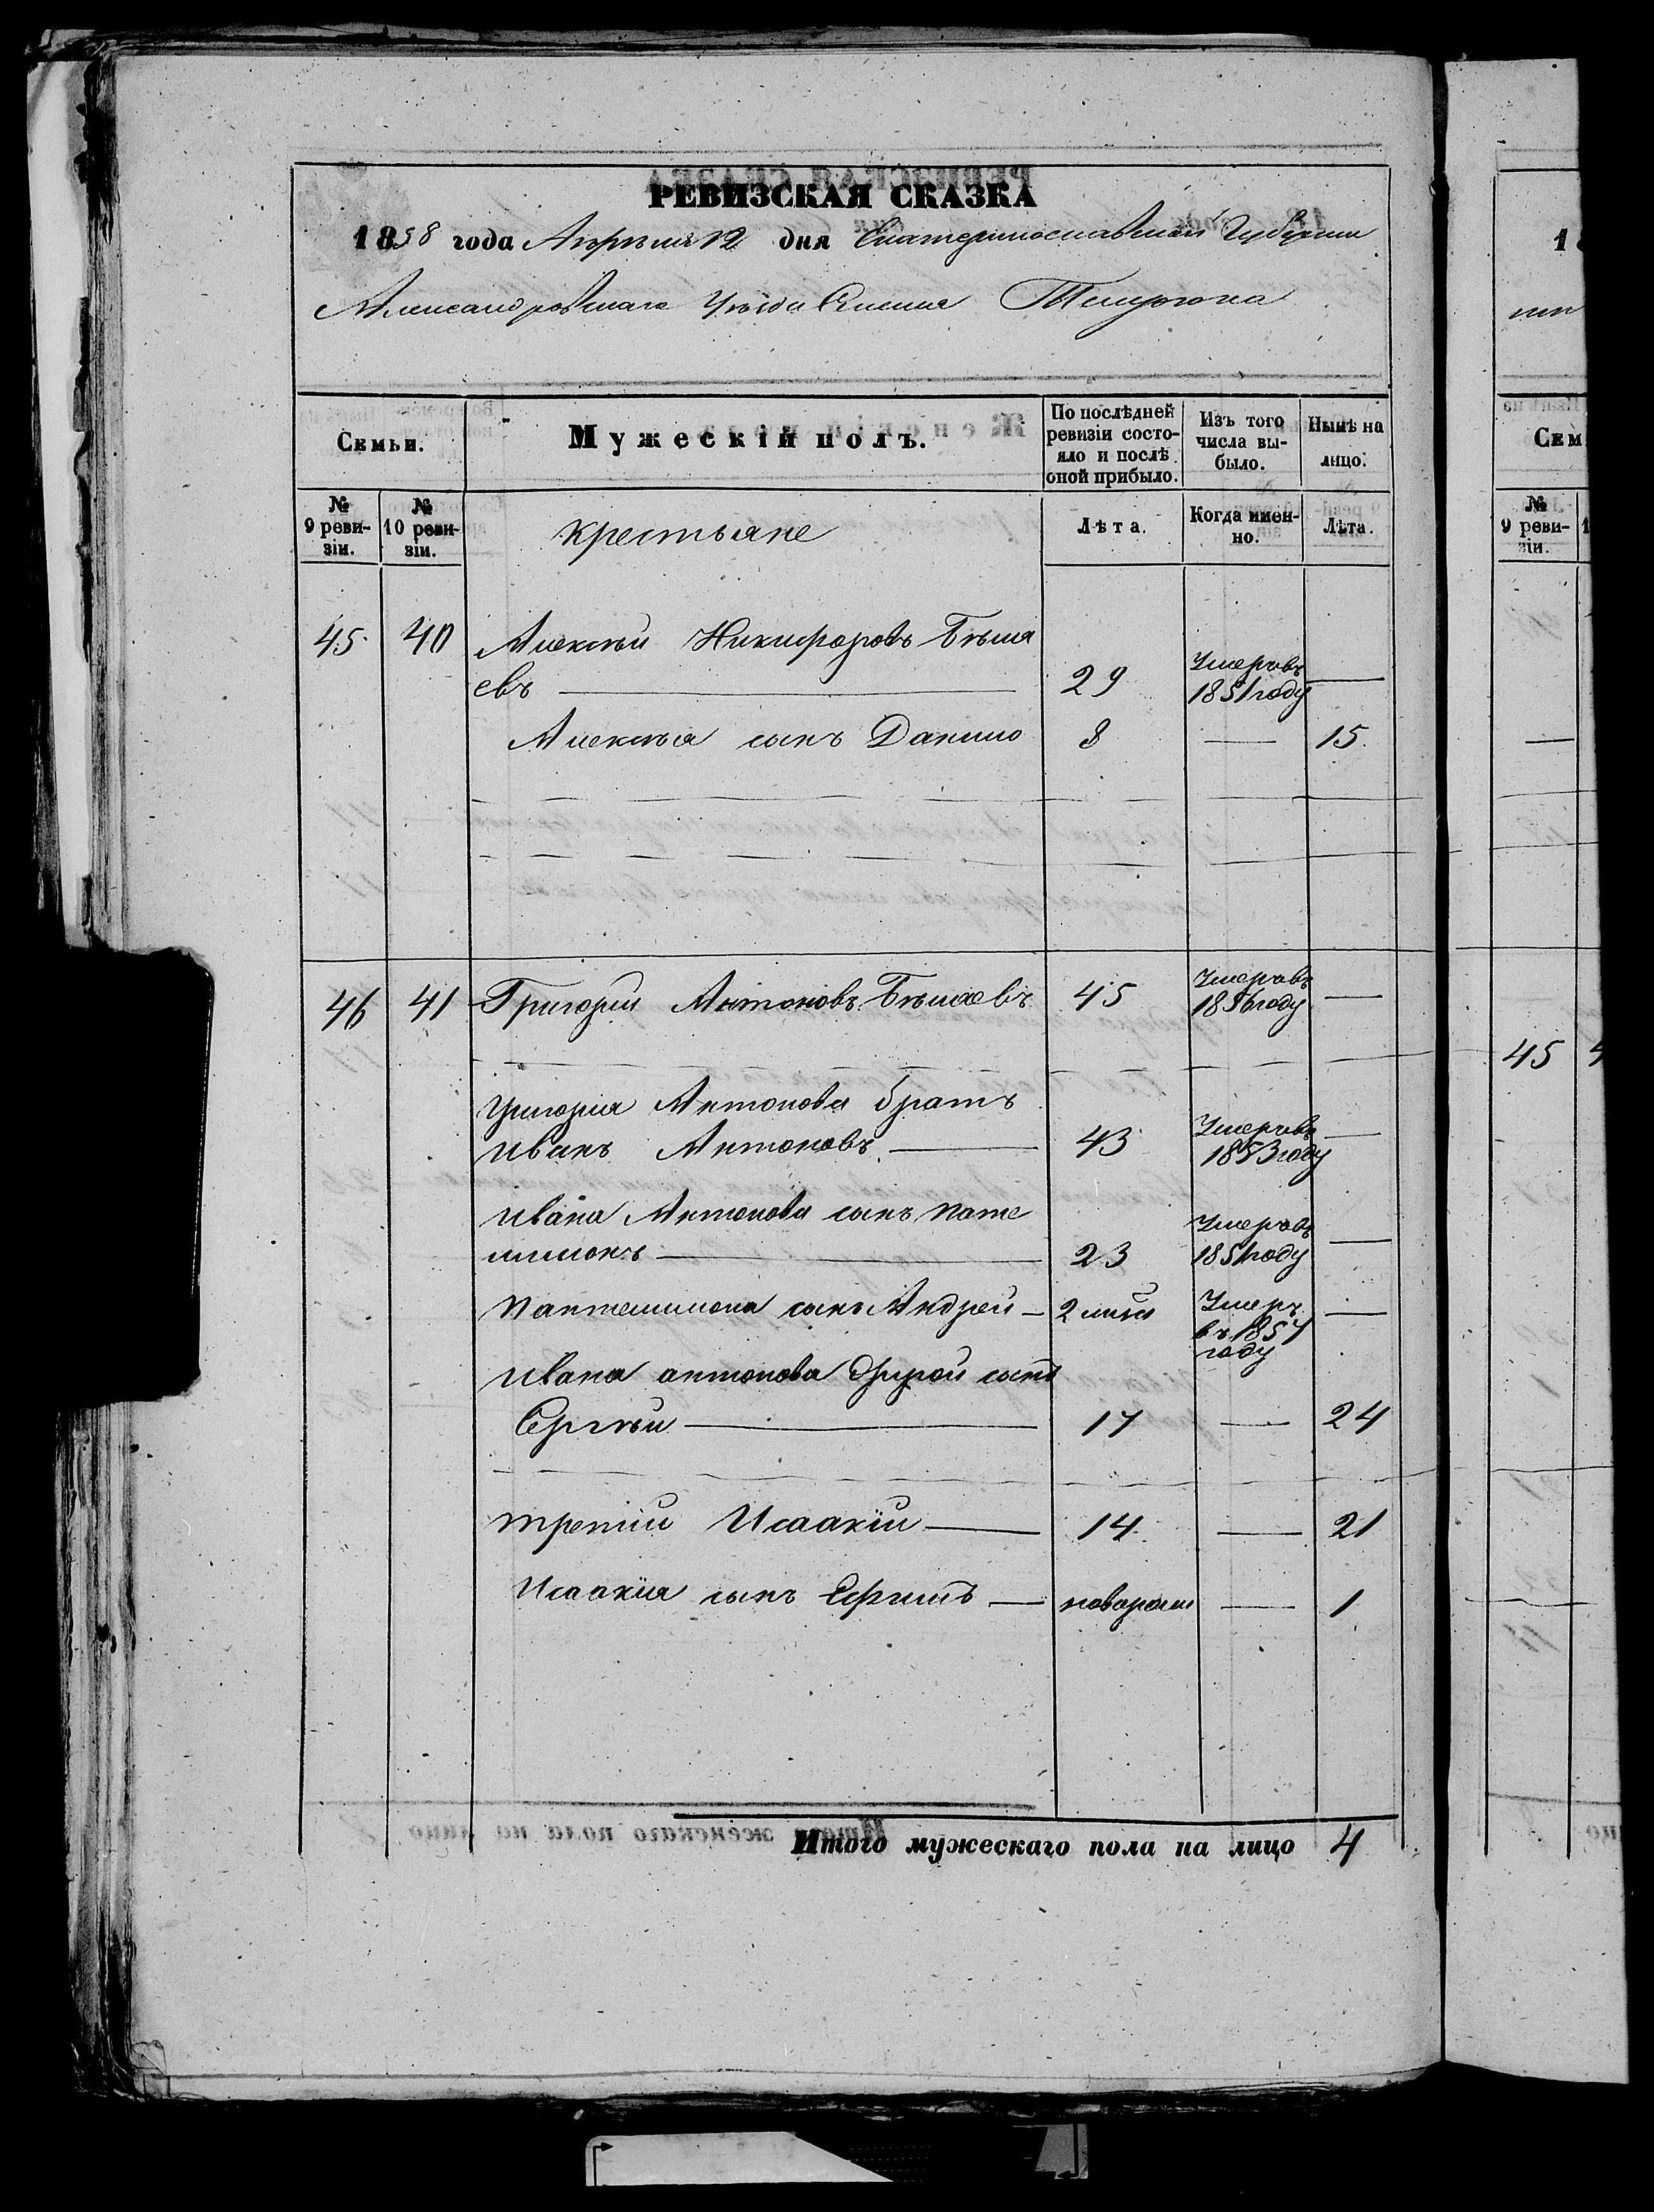 РЕВИЗСКАЯ СКАЗКА
1858 года Апрѣля 12 дня Екатеринославской Губернии
Александровскаго Уѣзда Селения Темрюка
Семьи.
Мужескій полъ.
По послѣдней ревизіи состояло и послѣ оной прибыло.
Изъ того числа выбыло.
Нынѣ на лицо.
№ 9 ревизіи.
№ 10 ревизіи.
крестьяне
Лѣта.
Когда именно.
Лѣта.
45 40 Алексѣй Никифоровъ Бѣля
евъ — 29 Умеръ въ 1851 году —
Алексѣя сынъ Данило 8 — 15.
46 41 Григорий Антоновъ Бѣляевъ 45 Умеръ въ 1856 году —
Григория Антонова братъ
Иванъ Антоновъ — 43 Умеръ въ 1853 году —
Ивана Антонова сынъ Пате
лимонъ — 23 Умеръ въ 1851 году —
Пантелимона сынъ Андрей — 2 Умеръ въ 1857 году —
Ивана антонова другой сынъ
Сергѣй — 17 — 24
третий Исаакій — 14. — 21
Исаакія сынъ Ефимъ — новорожд — 1
Итого мужескаго пола на лицо 4
1
Сем
№ 9 ревизіи.
45 4